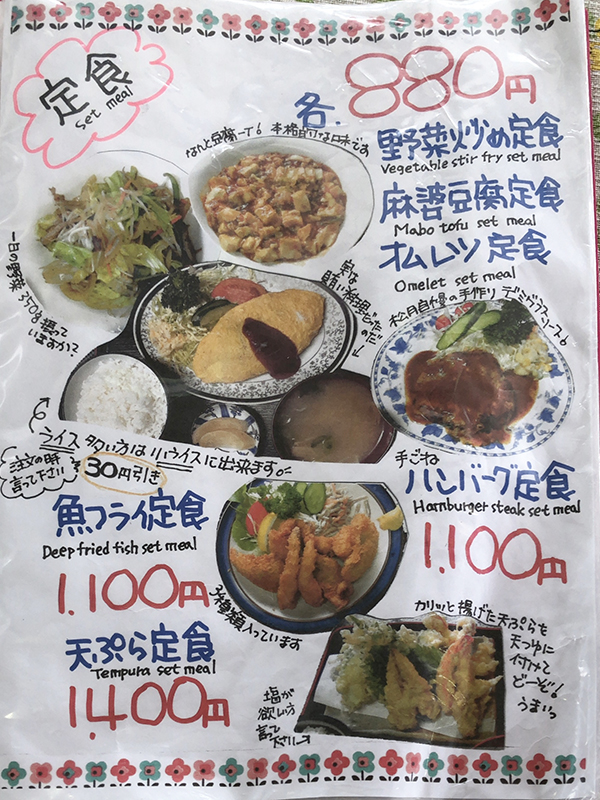 定食
set meal
各.880円
なんと豆腐一丁！本格的な口味です
野菜炒め定食
Vegetable stir fry set meal
麻婆豆腐定食
Mabo tofu set meal
オムレツ定食
Omelet set meal
一日の野菜350g摂って
いますか？
松月自慢の手作りデミグラスソース！
ライス多い方は小ライスに出来ます。
30円引き
注文の時
言って下さい
手ごね
ハンバーグ定食
Hamburger steak set meal
1,100円
魚フライ定食
Deep fried fish set meal
1,100円
3種類入っています
天ぷら定食
Tempura set meal
1,400円
カリッと揚げた天ぷらを
天つゆに
付けて
どーぞ！
うまいっ
塩が
欲しい方
言って
下さい→